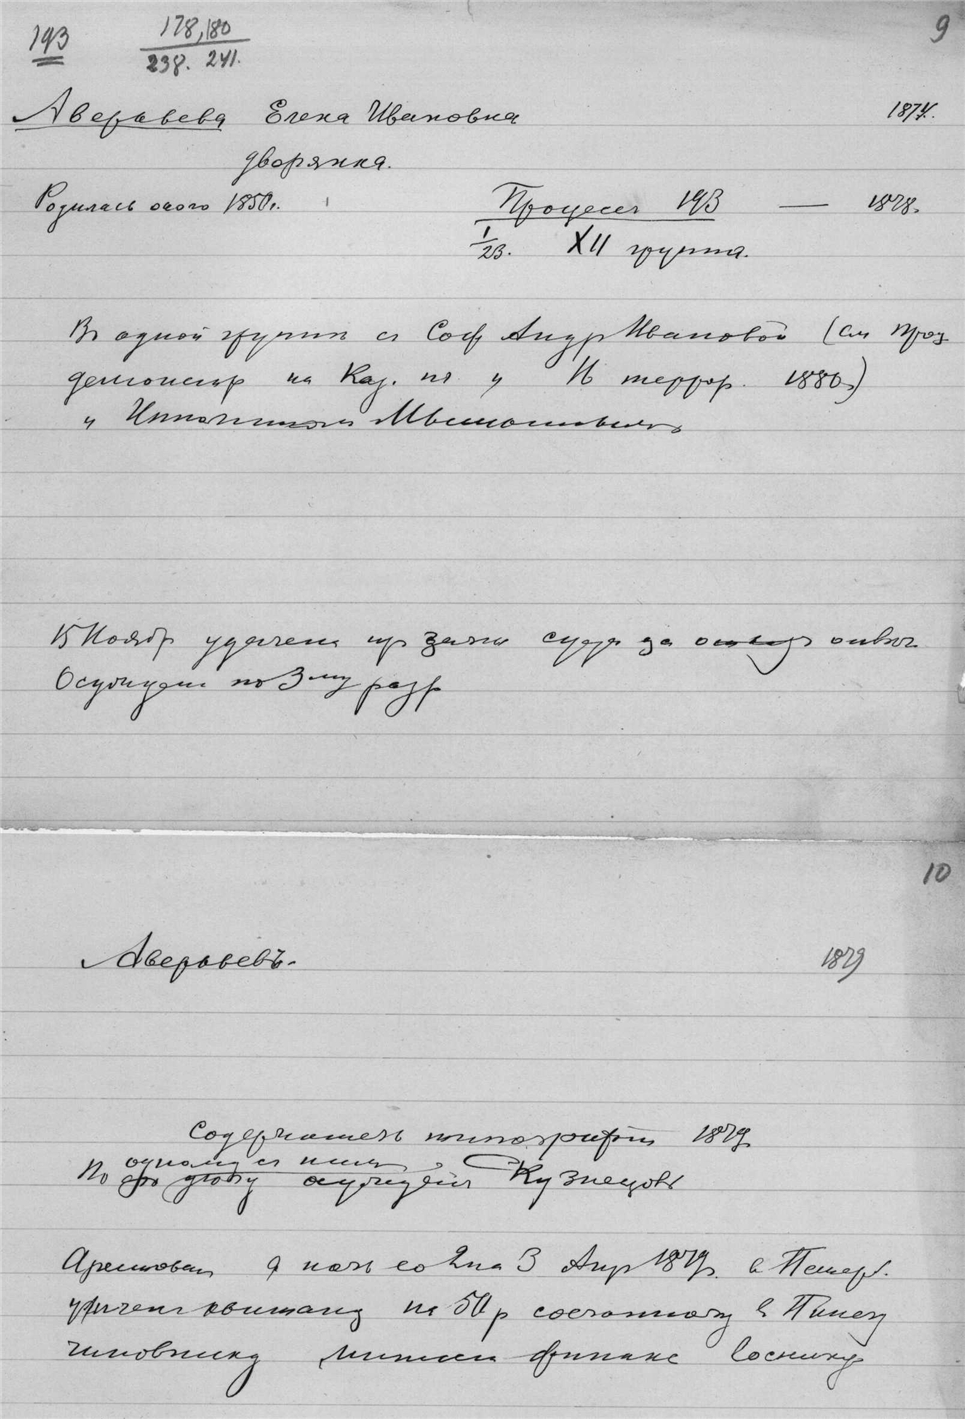 9
193 178,180
238. 241.
Аверьева Елена Ивановна 1874.
дворянка.
Родилась около 1850 г. Процесс 193 — 1878.
1/23. XII группа.
В одной группе с Соф Андр Ивановой (см проц.
демонстр на Каз. пл и 16 террор. 1880)
и Ипполитом Мышкиным
15 Ноябр удалена из залы суда за отказ отвеч
Осужден по 3му разр
10
Аверьевъ. 1879
Содержатель типографии 1879
одному с ним
По его делу осужден Кузнецов
Арестован в ночь со 2 на 3 Апр 1879. в Петерб.
на 50 р в
чиновнику финанс